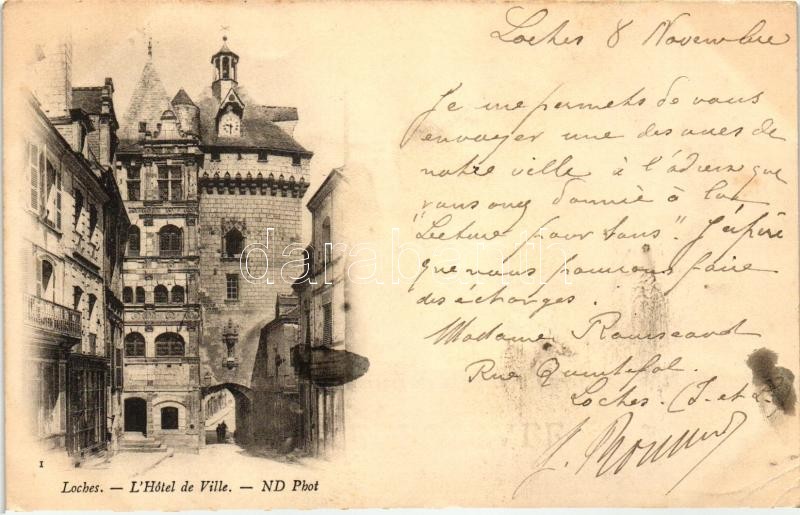 Loches 8 Novembre
Je me permets de vous
envoyer une des vues de
notre ville à l'adresse que
vous avez donnée à la
"Lecture pour tous". J'espère
que nous pourrons faire
des échanges.
Madame
Rue Quintefol.
Loches. (I. et L.)
1
Loches. — L'Hôtel de Ville. — ND Phot
darabanth